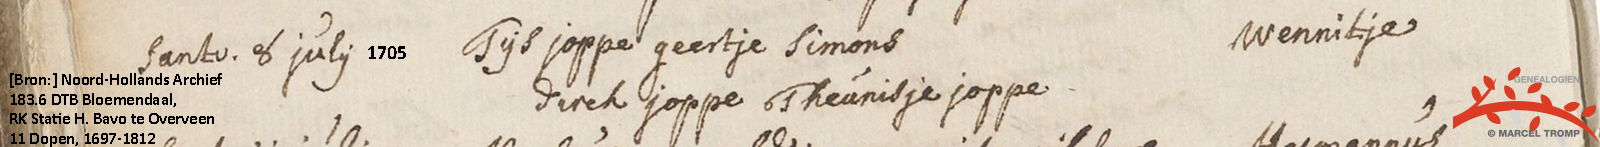 Santv. 8 july 1705 Tijs joppe geertje Simons Wennitje
[Bron:] Noord-Hollands Archief
183.6 DTB Bloemendaal,
RK Statie H. Bavo te Overveen
11 Dopen, 1697-1812
dirck joppe Theunisje joppe
GENEALOGIEN
© MARCEL TROMP